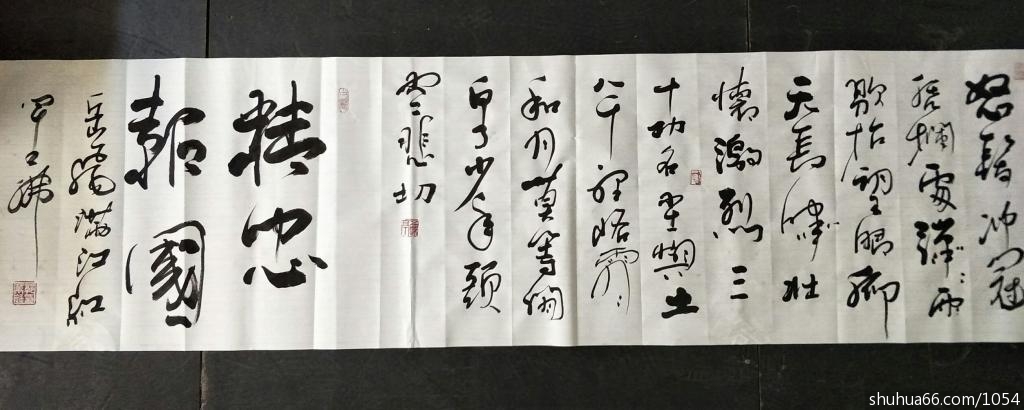 怒髮冲冠
憑欄處瀟瀟雨
歇抬望眼仰
天長嘯壯
懷激烈三
十功名塵與土
八千里路雲
和月莫等閒
白了少年頭
空悲切
精忠
報國
岳飛滿江紅
shuhua66.com/1054